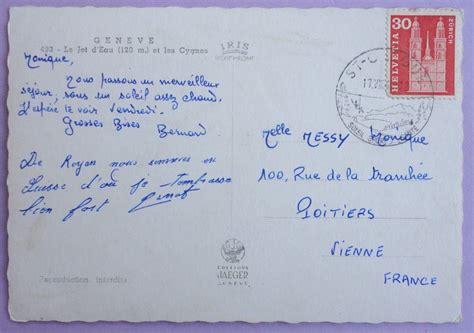 GENEVE
493 - Le Jet d'Eau (120 m.) et les Cygnes
IRIS
Monique,
Nous passons un merveilleux
séjour, sous un soleil assez chaud.
J'espère te voir Vendredi.
Grosses Bises Bernard
De Royan nous sommes en
Suisse d'où je t'embrasse
bien fort
30
HELVETIA
ZÜRICH
ST-C
Melle MESSY Monique
100, Rue de la tranchée
POITIERS
VIENNE
FRANCE
Reproduction interdite
EDITIONS
JAEGER
GENÈVE